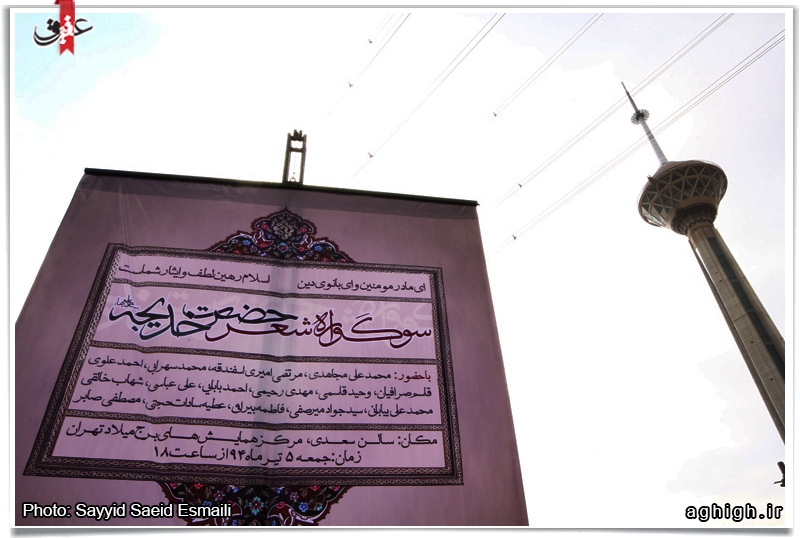 عقیق
ای مادر مومنین و ای بانوی دین اسلام رهین لطف و ایثار شماست
سوگواره شعر حضرت خدیجه
باحضور: محمدعلی مجاهدی، مرتضی امیری اسفندقه، محمد سهرابی، احمد علوی
قاسم صرافیان، وحید قاسمی، مهدی رحیمی، احمد بابایی، علی عباسی، شهاب خالقی
محمدعلی بیابانی، سیدجواد میرصفی، فاطمه بیرانق، عطیه سادات حجتی، مصطفی صابر
مکان: سالن سعدی، مرکز همایش‌های برج میلاد تهران
زمان: جمعه ۵ تیر ماه ۹۴ از ساعت ۱۸
Photo: Sayyid Saeid Esmaili
aghigh.ir